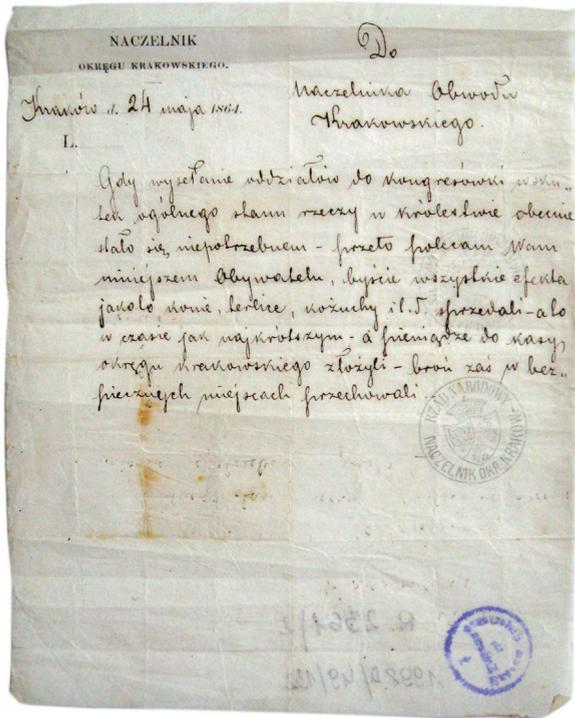 NACZELNIK
OKRĘGU KRAKOWSKIEGO.
Kraków d. 24 maja 1864.
L.
Do
Naczelnika Obwodu
Krakowskiego.
Gdy wysełanie oddziałów do kongresówki wsku„
tek ogólnego stanu rzeczy w królestwie obecnie
stało się niepotrzebnem – przeto polecam Wam
niniejszem Obywatelu, byście wszystkie efekta
jakoto konie, terlice, kożuchy i t. d. sprzedali – a to
w czasie jak najkrótszym – a pieniądze do kasy
okręgu krakowskiego złożyli – broń zaś w bez„
piecznych miejscach przechowali.
RZĄD NARODOWY
NACZELNIK OKR. KRAKOW
R. 2361/2